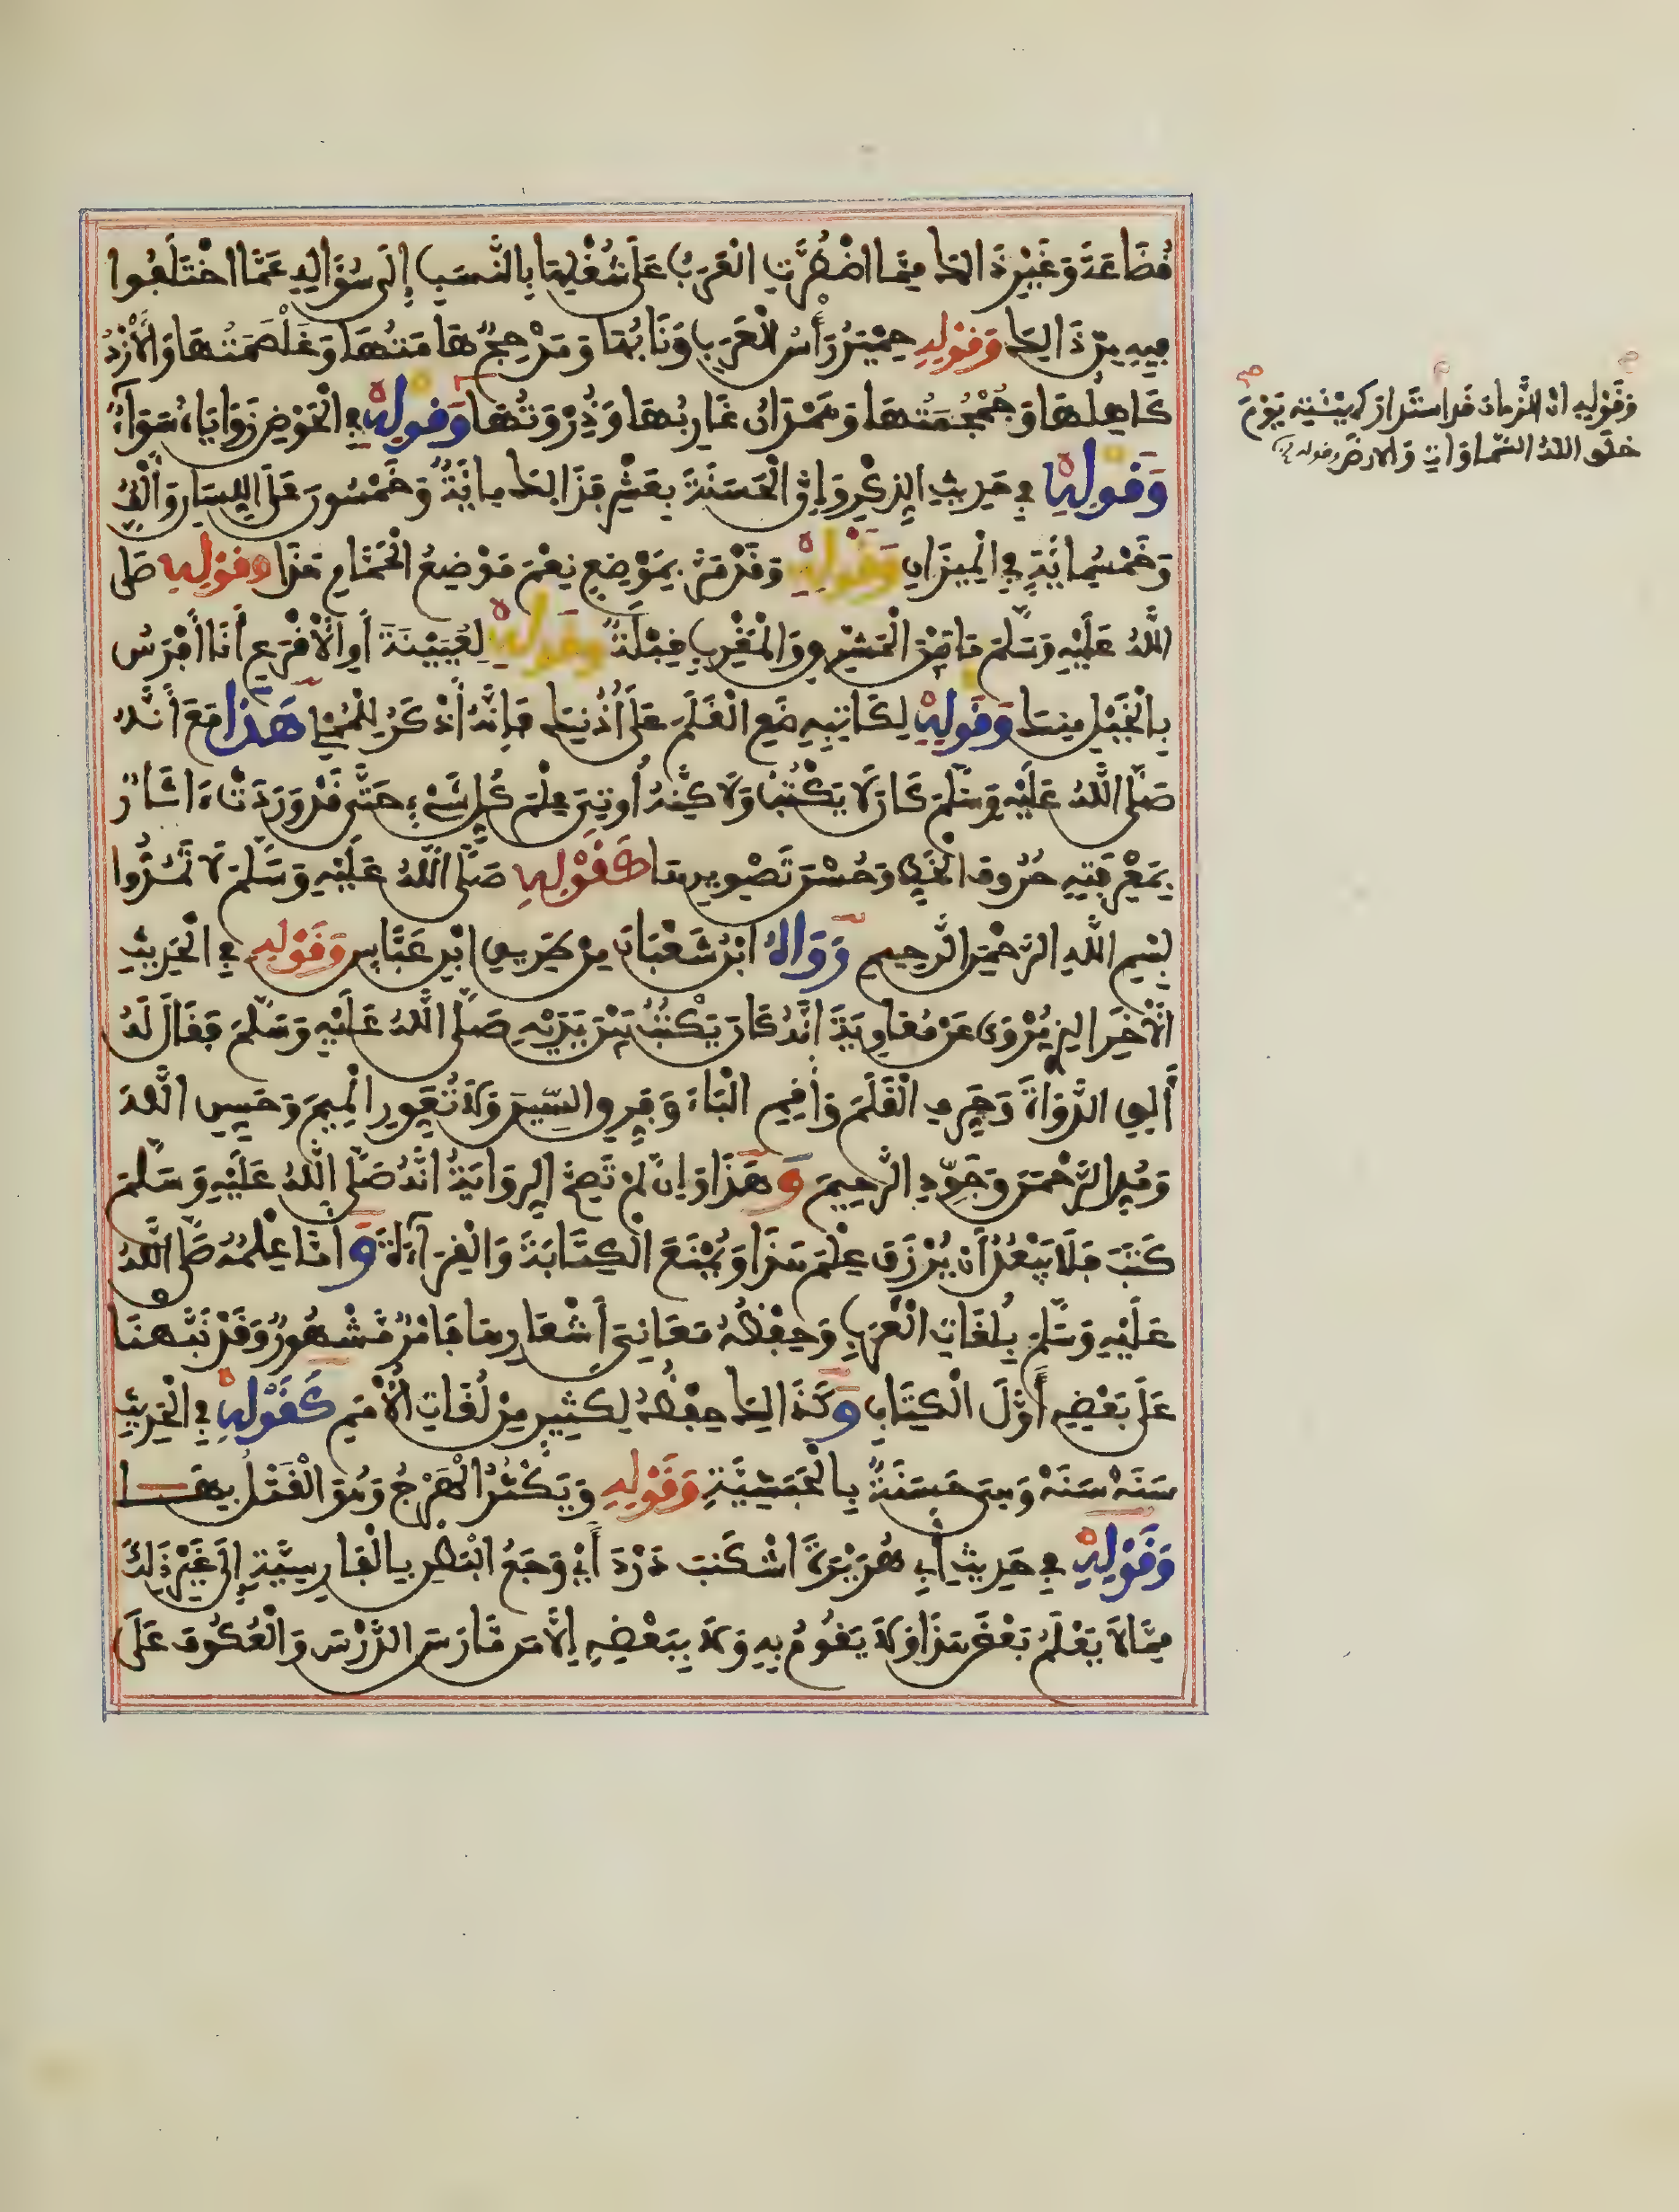 قُضَاعَةَ وَغَيْرَ ذَالِكَ مِمَّا اضْطُرَّتِ الْعَرَبُ عَلَى شُغْلِهَا بِالنَّسَبِ إِلَى سُؤَالِهِ عَمَّا اخْتَلَفُوا
فِيهِ مِنْ ذَالِكَ وَقَوْلِهِ حِمْيَرُ رَأْسُ الْعَرَبِ وَنَابُهَا وَمَذْحِجٌ هَامَتُهَا وَغَلْصَمَتُهَا وَالْأَزْدُ
كَاهِلُهَا وَجُمْجُمَتُهَا وَهَمْدَانُ غَارِبُهَا وَذِرْوَتُهَا وَقَوْلِهِ فِي الْحَوْضِ زَوَايَاهُ سَوَاءٌ
وَقَوْلِهِ فِي حَدِيثِ الذِّكْرِ وَإِنَّ الْحَسَنَةَ بِعَشْرٍ فَذَالِكَ مِائَةٌ وَخَمْسُونَ عَلَى اللِّسَانِ وَأَلْفٌ
وَخَمْسُمِائَةٍ فِي الْمِيزَانِ وَقَوْلِهِ وَقَدْ مَرَّ بِمَوْضِعٍ نِعْمَ مَوْضِعُ الْحَمَّامِ هَذَا وَقَوْلِهِ صَلَّى
اللَّهُ عَلَيْهِ وَسَلَّمَ مَا بَيْنَ الْمَشْرِقِ وَالْمَغْرِبِ قِبْلَةٌ وَقَوْلِهِ لِعُيَيْنَةَ أَوِ الْأَقْرَعِ أَنَا أَفْرَسُ
بِالْخَيْلِ مِنْكَ وَقَوْلِهِ لِكَاتِبِهِ ضَعِ الْقَلَمَ عَلَى أُذُنِكَ فَإِنَّهُ أَذْكَرُ لِلْمُمْلِي هَذَا مَعَ أَنَّهُ
صَلَّى اللَّهُ عَلَيْهِ وَسَلَّمَ كَانَ لَا يَكْتُبُ وَلَاكِنَّهُ أُوتِيَ عِلْمَ كُلِّ شَيْءٍ حَتَّى قَدْ وَرَدَتْ ءَاثَارٌ
بِمَعْرِفَتِهِ حُرُوفَ الْخَطِّ وَحُسْنَ تَصْوِيرِهَا كَقَوْلِهِ صَلَّى اللَّهُ عَلَيْهِ وَسَلَّمَ لَا تَمُدُّوا
بِسْمِ اللَّهِ الرَّحْمَنِ الرَّحِيمِ رَوَاهُ ابْنُ شَعْبَانَ مِنْ طَرِيقِ ابْنِ عَبَّاسٍ وَقَوْلِهِ فِي الْحَدِيثِ
الْآخَرِ الَّذِي يُرْوَى عَنْ مُعَاوِيَةَ أَنَّهُ كَانَ يَكْتُبُ بَيْنَ يَدَيْهِ صَلَّى اللَّهُ عَلَيْهِ وَسَلَّمَ فَقَالَ لَهُ
أَلِقِ الدَّوَاةَ وَحَرِّفِ الْقَلَمَ وَأَقِمِ الْبَاءَ وَفَرِّقِ السِّينَ وَلَا تُعَوِّرِ الْمِيمَ وَحَسِّنِ اللَّهَ
وَمُدَّ الرَّحْمَنَ وَجَوِّدِ الرَّحِيمَ وَهَذَا وَإِنْ لَمْ تَصِحَّ الرِّوَايَةُ أَنَّهُ صَلَّى اللَّهُ عَلَيْهِ وَسَلَّمَ
كَتَبَ فَلَا يَبْعُدُ أَنْ يُرْزَقَ عِلْمَ هَذَا وَيُمْنَعَ الْكِتَابَةَ وَالْقِرَاءَةَ وَأَمَّا عِلْمُهُ صَلَّى اللَّهُ
عَلَيْهِ وَسَلَّمَ بِلُغَاتِ الْعَرَبِ وَحِفْظُهُ مَعَانِيَ أَشْعَارِهَا فَأَمْرٌ مَشْهُورٌ وَقَدْ نَبَّهْنَا
عَلَى بَعْضِهِ أَوَّلَ الْكِتَابِ وَكَذَالِكَ حِفْظُهُ لِكَثِيرٍ مِنْ لُغَاتِ الْأُمَمِ كَقَوْلِهِ فِي الْحَدِيثِ
سَنَهْ سَنَهْ وَهِيَ حَسَنَةٌ بِالْحَبَشِيَّةِ وَقَوْلِهِ وَيَكْثُرُ الْهَرْجُ وَهُوَ الْقَتْلُ بِهَا
وَقَوْلِهِ فِي حَدِيثِ أَبِي هُرَيْرَةَ اشْكَنبَ دَرْدَ أَيْ وَجَعُ الْبَطْنِ بِالْفَارِسِيَّةِ إِلَى غَيْرِ ذَلِكَ
مِمَّا لَا يَعْلَمُ بَعْضَ هَذَا وَلَا يَقُومُ بِهِ وَلَا بِبَعْضِهِ إِلَّا مَنْ مَارَسَ الدَّرْسَ وَالْعُكُوفَ عَلَى
وَقَوْلِهِ إِنَّ الزَّمَانَ قَدِ اسْتَدَارَ كَهَيْئَتِهِ يَوْمَ
خَلَقَ اللَّهُ السَّمَاوَاتِ وَالْأَرْضَ وقوله في